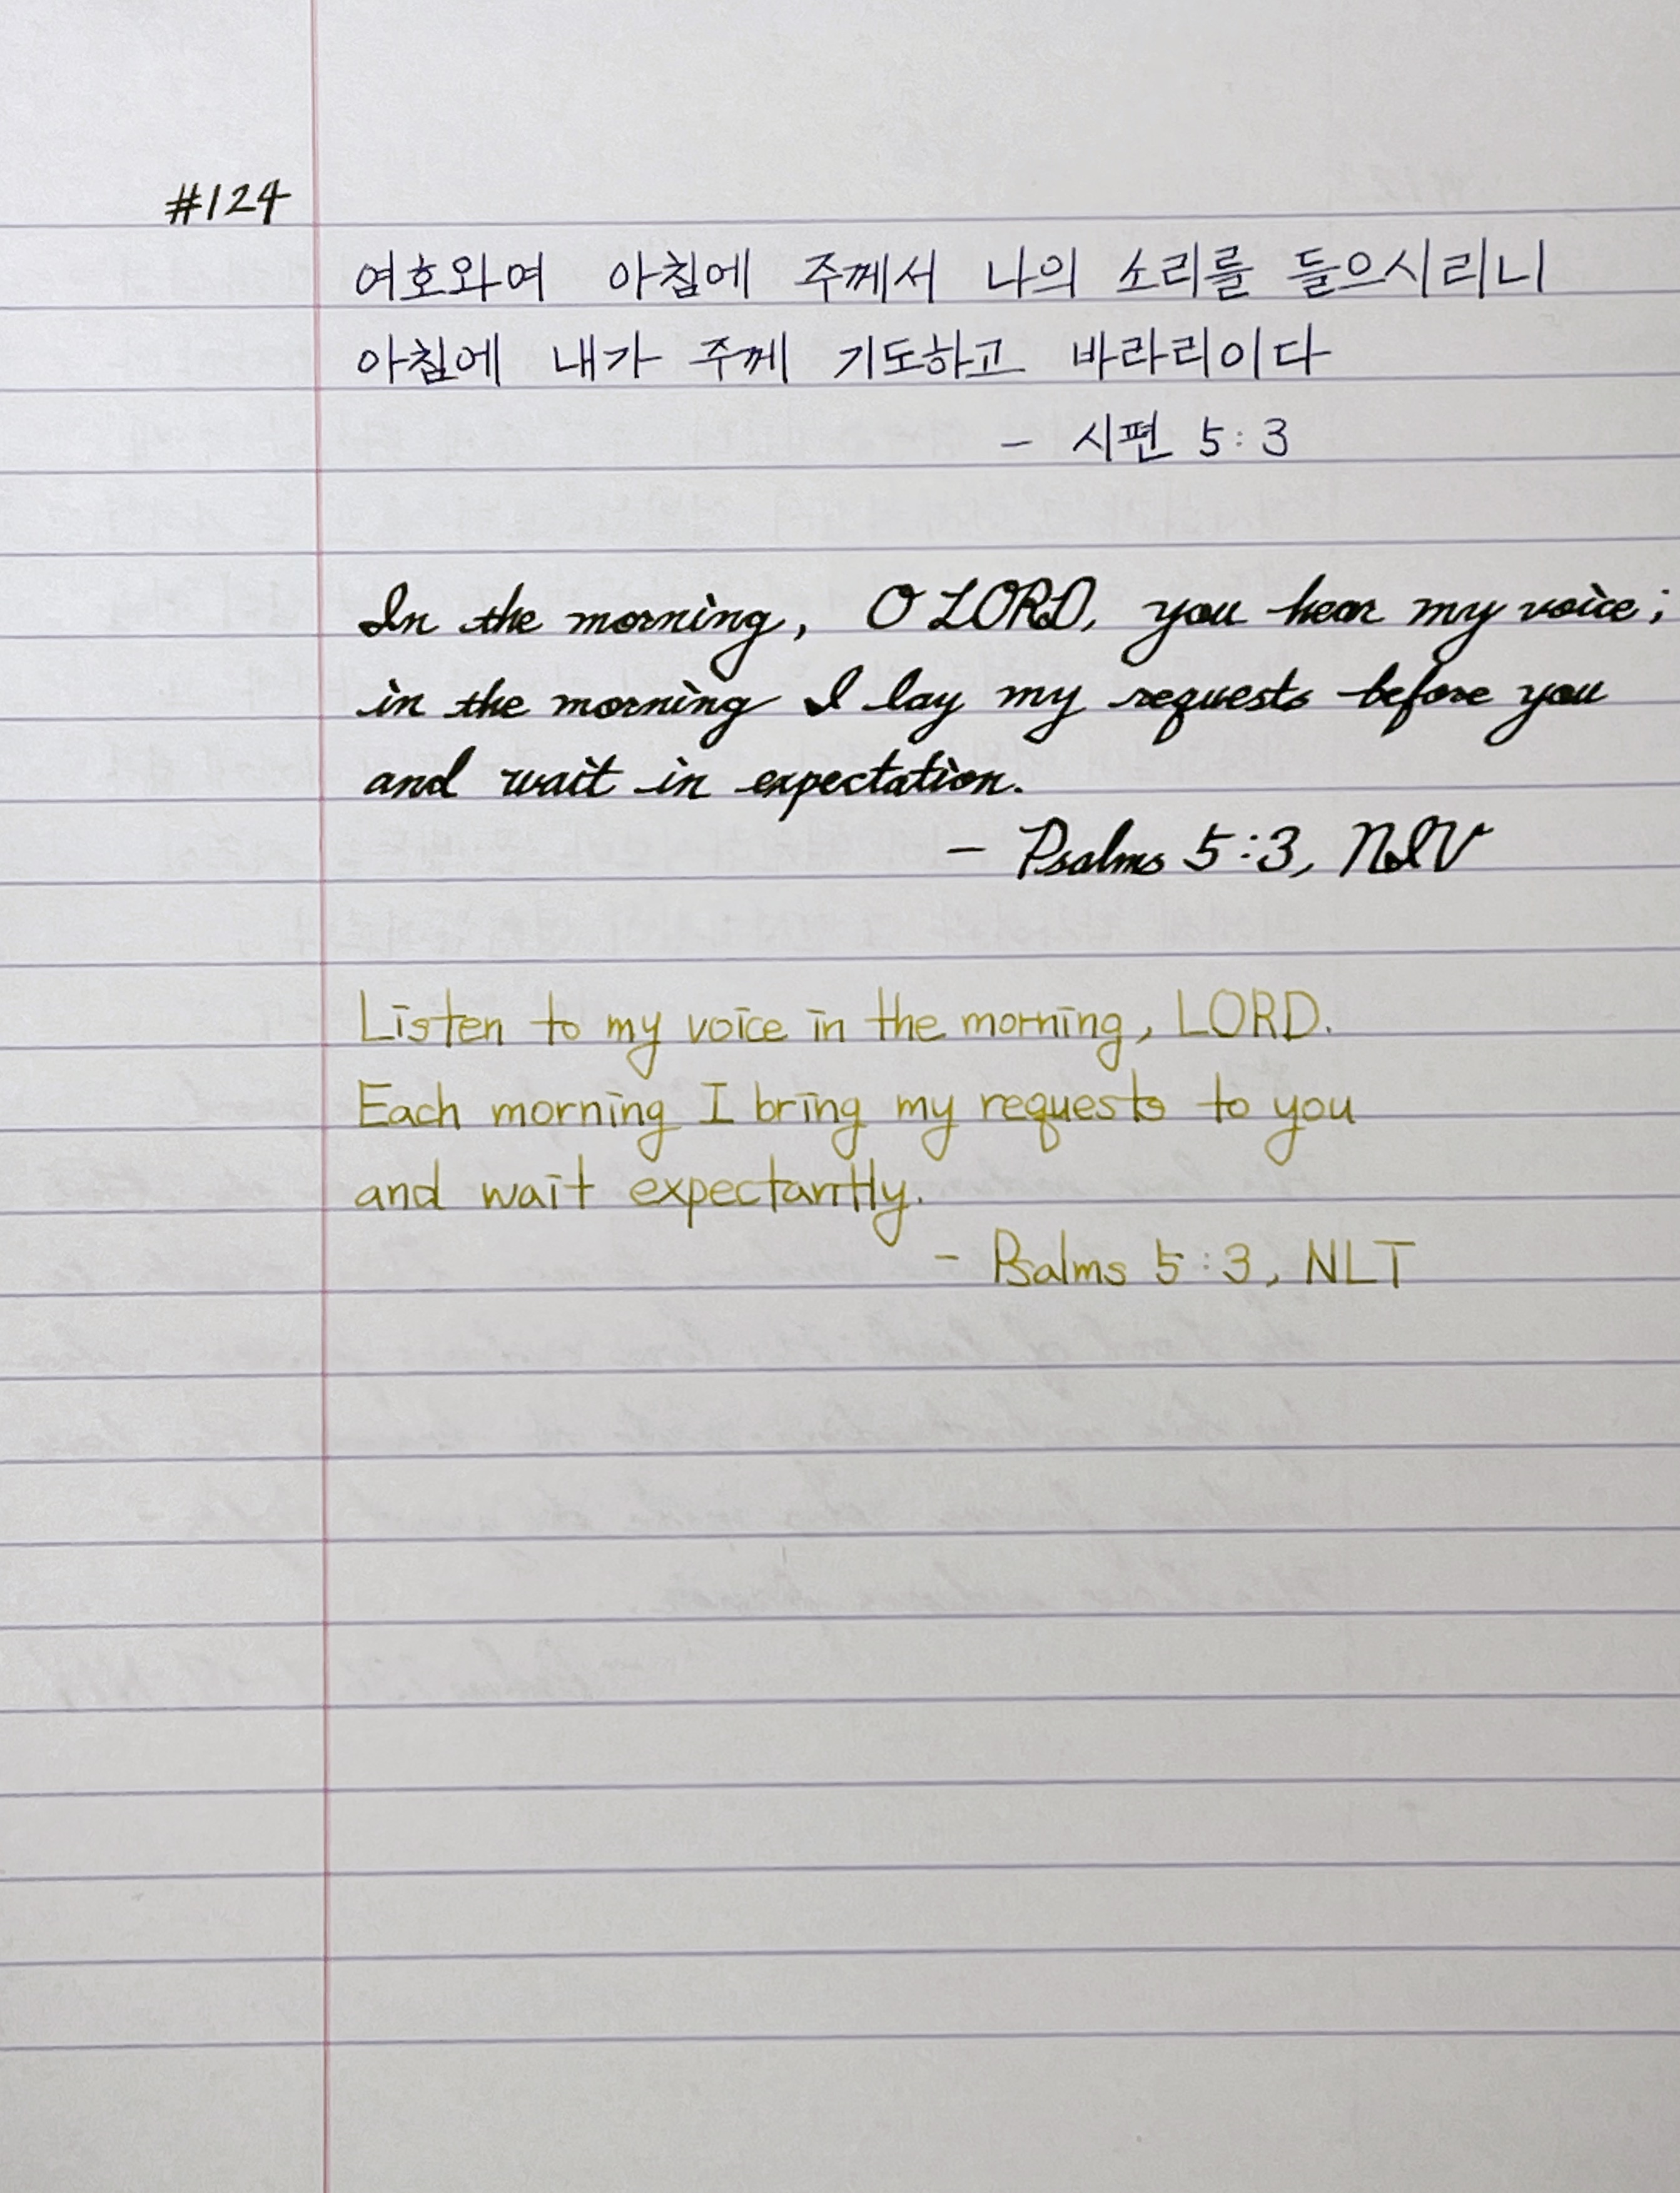 #124
여호와여 아침에 주께서 나의 소리를 들으시리니
아침에 내가 주께 기도하고 바라리이다
- 시편 5:3
In the morning, O LORD, you hear my voice;
in the morning I lay my requests before you
and wait in expectation.
- Psalms 5:3, NIV
Listen to my voice in the morning, LORD.
Each morning I bring my requests to you
and wait expectantly.
- Psalms 5:3, NLT